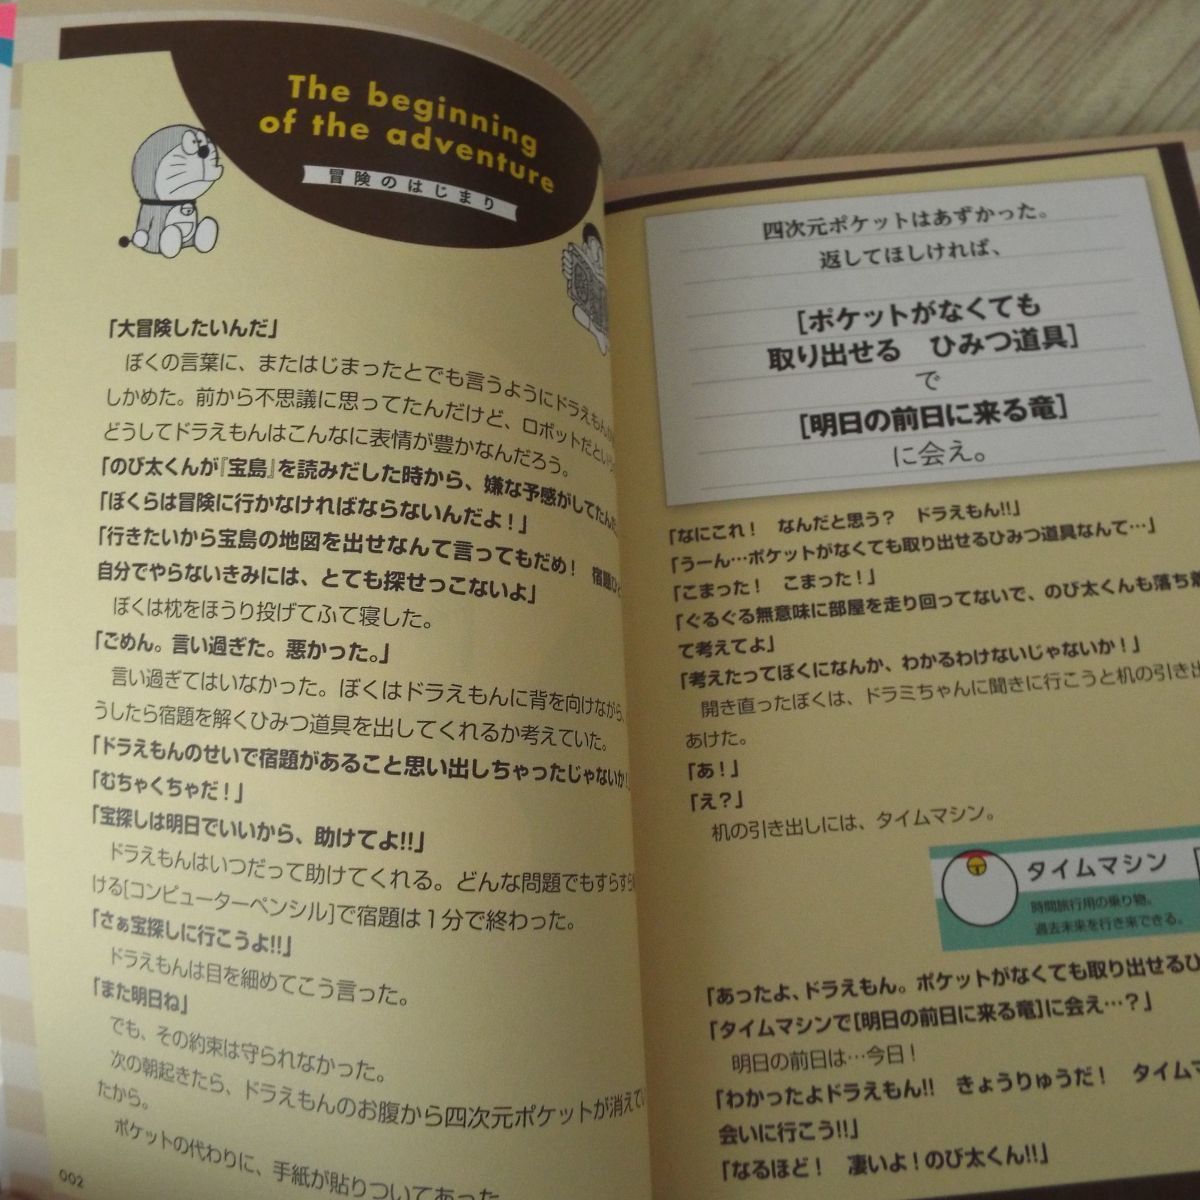 The beginning
of the adventure
冒険のはじまり
「大冒険したいんだ」
ぼくの言葉に、またはじまったとでも言うようにドラえもんが
しかめた。前から不思議に思ってたんだけど、ロボットだという
どうしてドラえもんはこんなに表情が豊かなんだろう。
「のび太くんが『宝島』を読みだした時から、嫌な予感がしてたんだ
「ぼくらは冒険に行かなければならないんだよ！」
「行きたいから宝島の地図を出せなんて言ってもだめ！　宿題ひと
自分でやらないきみには、とても探せっこないよ」
ぼくは枕をほうり投げてふて寝した。
「ごめん。言い過ぎた。悪かった。」
言い過ぎてはいなかった。ぼくはドラえもんに背を向けながら、
うしたら宿題を解くひみつ道具を出してくれるか考えていた。
「ドラえもんのせいで宿題があること思い出しちゃったじゃないか！
「むちゃくちゃだ！」
「宝探しは明日でいいから、助けてよ!!」
ドラえもんはいつだって助けてくれる。どんな問題でもすらすら
ける[コンピューターペンシル]で宿題は１分で終わった。
「さぁ宝探しに行こうよ!!」
ドラえもんは目を細めてこう言った。
「また明日ね」
でも、その約束は守られなかった。
次の朝起きたら、ドラえもんのお腹から四次元ポケットが消えてい
たから。
ポケットの代わりに、手紙が貼りついてあった
002
四次元ポケットはあずかった。
返してほしければ、
[ポケットがなくても
取り出せる　ひみつ道具]
で
[明日の前日に来る竜]
に会え。
「なにこれ！　なんだと思う？　ドラえもん!!」
「うーん…ポケットがなくても取り出せるひみつ道具なんて…」
「こまった！　こまった！」
「ぐるぐる無意味に部屋を走り回ってないで、のび太くんも落ち着
て考えてよ」
「考えたってぼくになんか、わかるわけないじゃないか！」
開き直ったぼくは、ドラミちゃんに聞きに行こうと机の引き出
あけた。
「あ！」
「え？」
机の引き出しには、タイムマシン。
タイムマシン
時間旅行用の乗り物。
過去未来を行き来できる。
「あったよ、ドラえもん。ポケットがなくても取り出せるひ
「タイムマシンで[明日の前日に来る竜]に会え…？」
明日の前日は…今日！
「わかったよドラえもん!!　きょうりゅうだ！　タイムマ
会いに行こう!!」
「なるほど！　凄いよ！のび太くん!!」